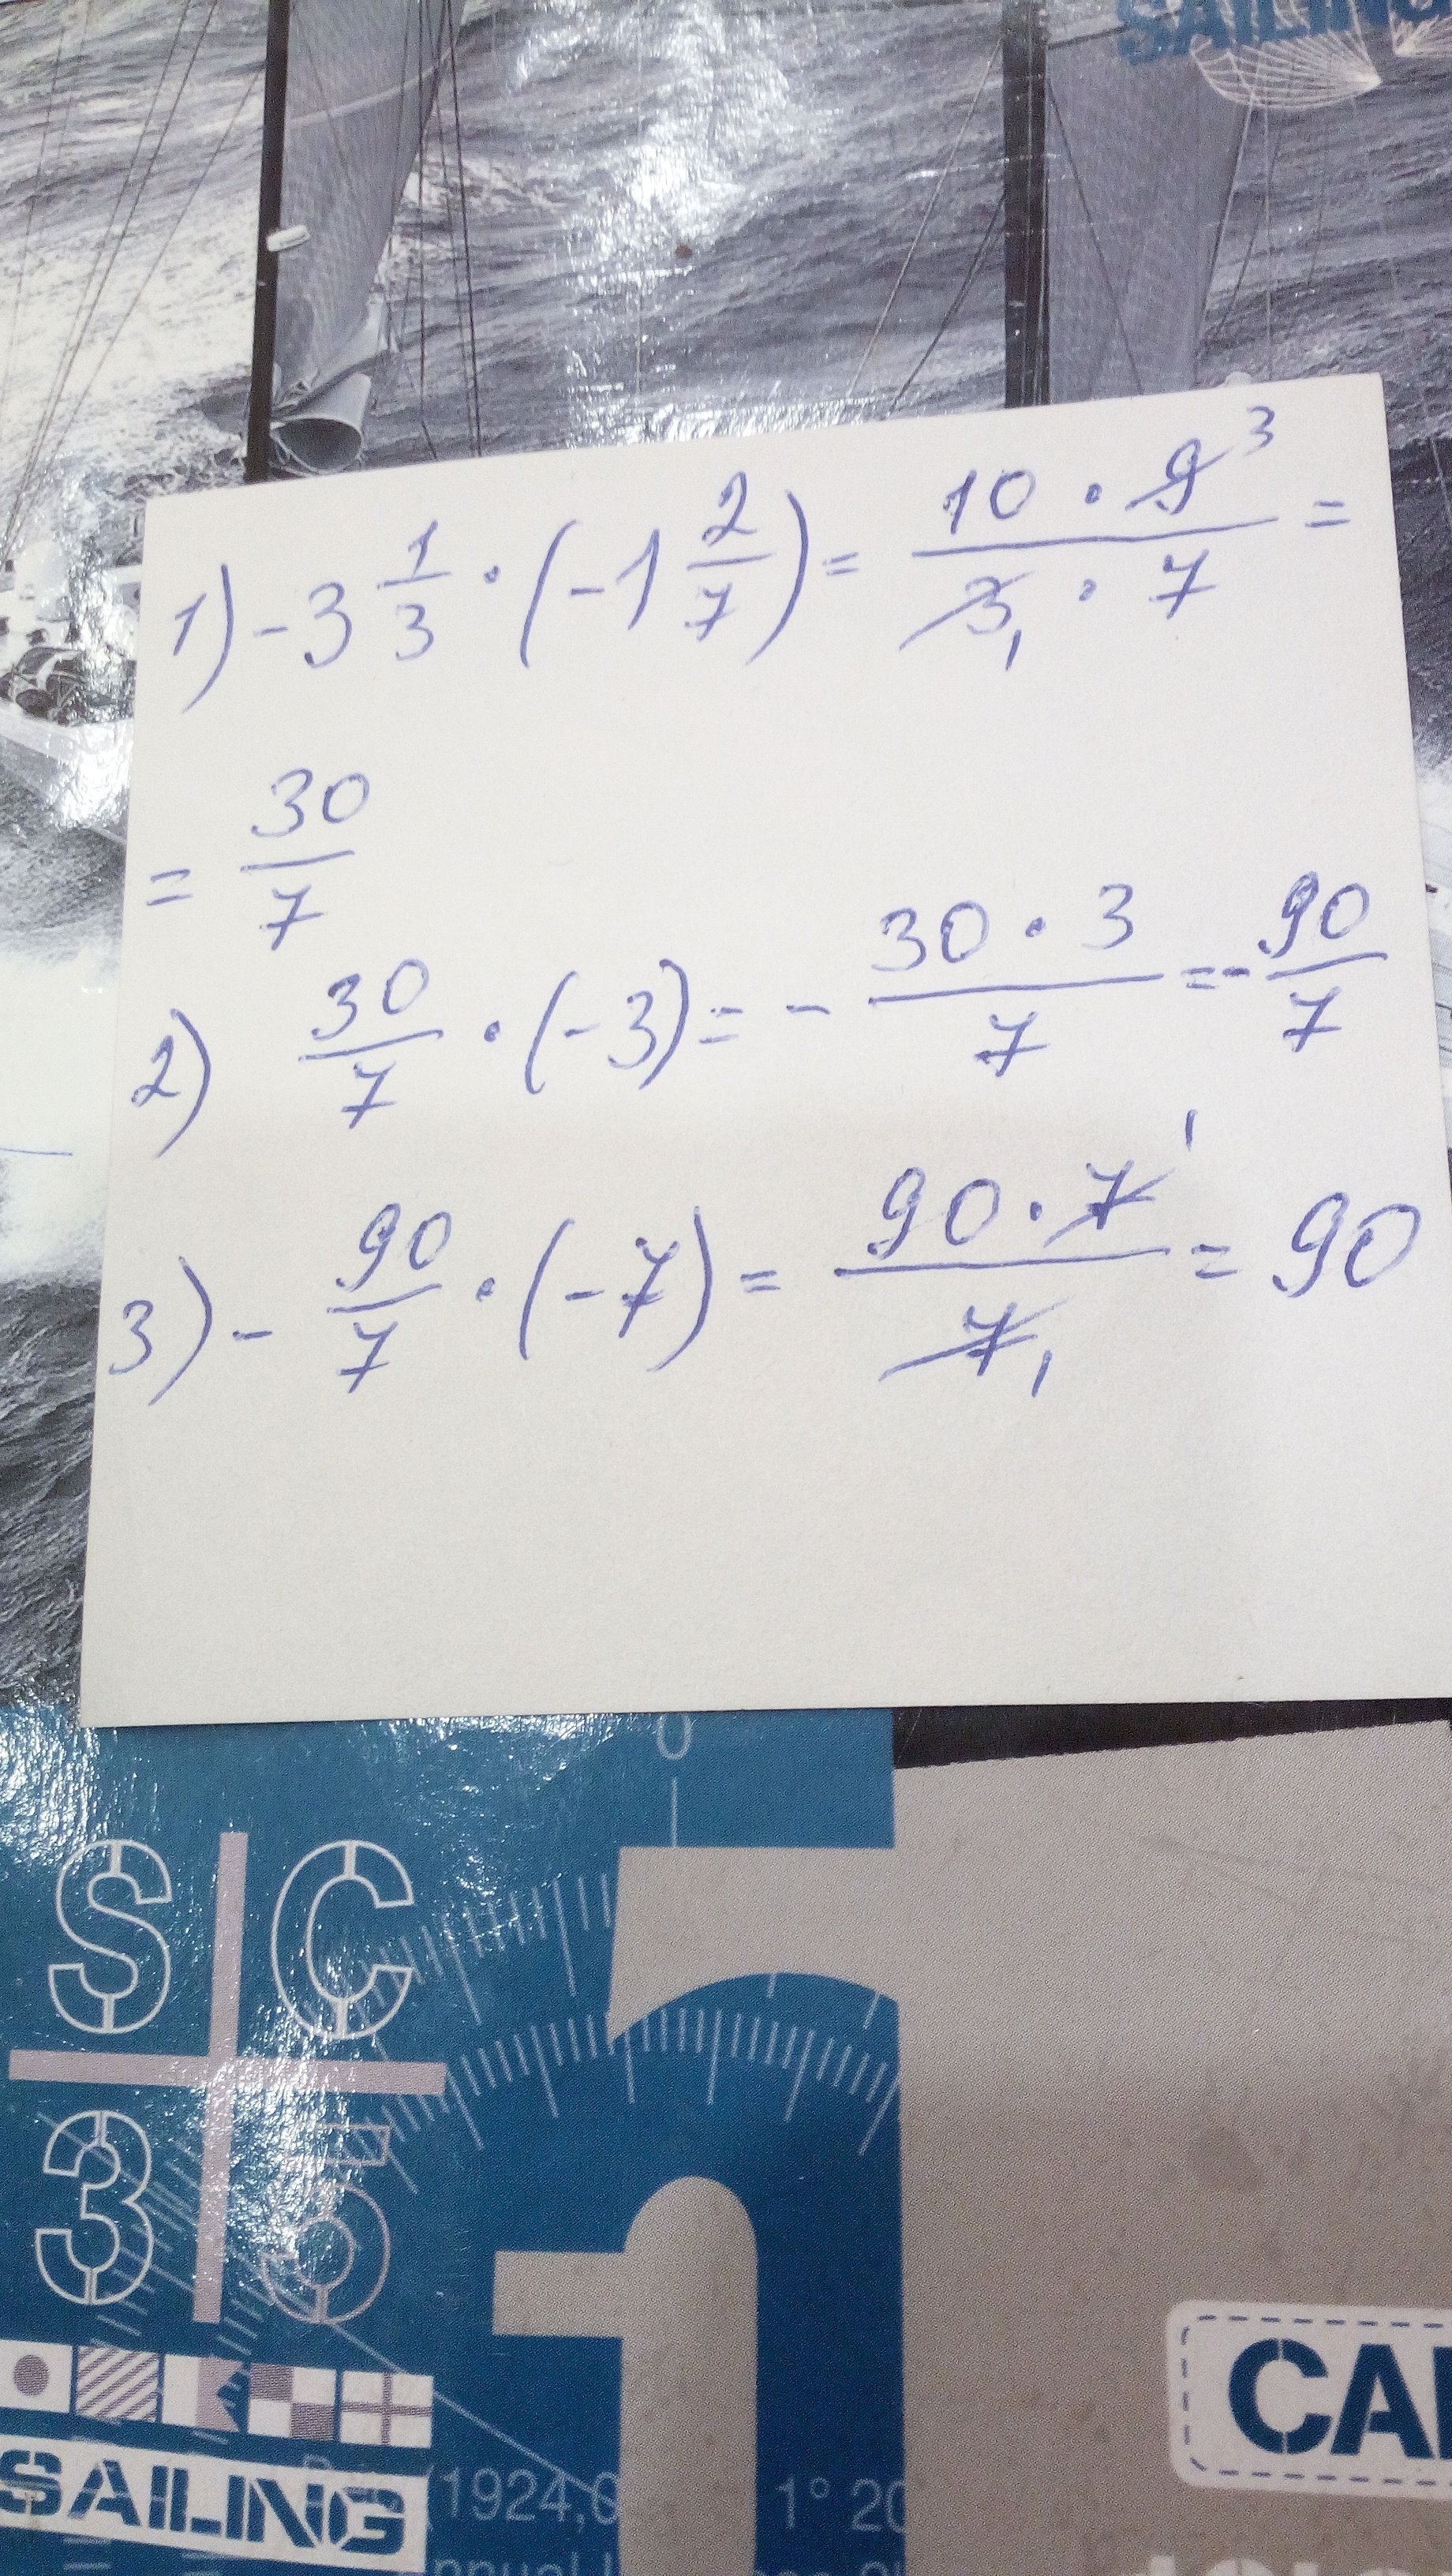 SAILING
1) -3 1/3 · (-1 2/7) = 10 · 9 3 / 3 1 · 7 =
= 30/7
2) 30/7 · (-3) = - 30 · 3 / 7 = - 90/7
3) - 90/7 · (-7) = 90 · 7 1 / 7 1 = 90
0
SC
35
1
CA
SAILING
(1924,
1° 20